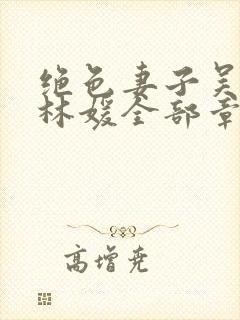 绝色妻子吴
林媛全部章
高增尧